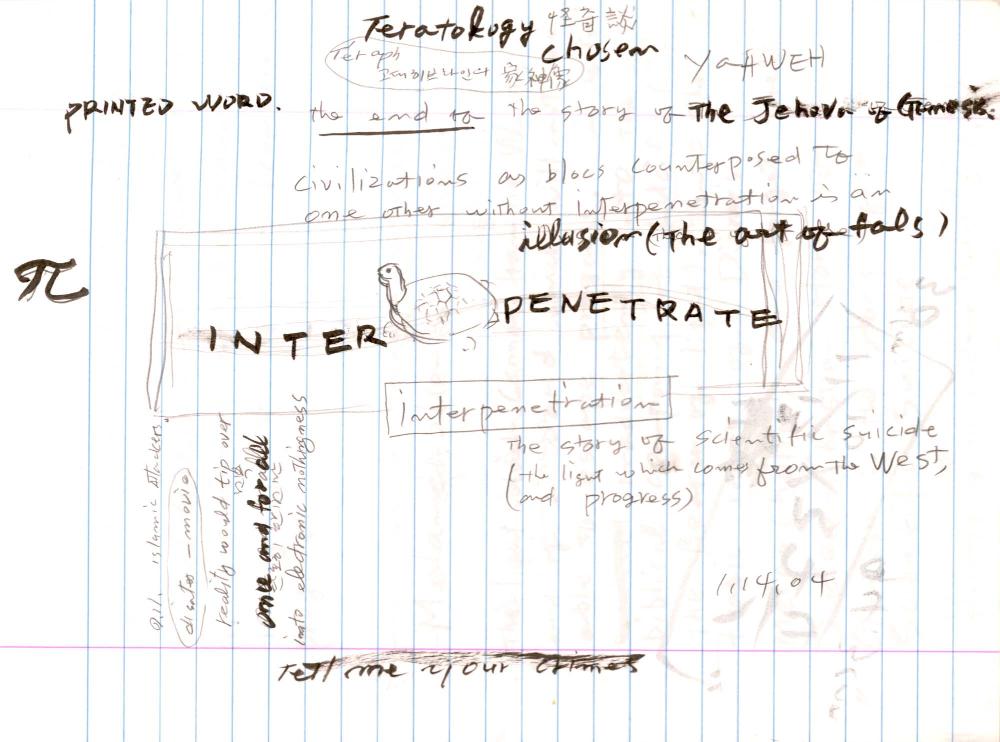 Teratology 怪奇談
chosen
Teraph
고대히브라인의 家神像
YaHWEH
PRINTED WORD. the end of the story of The Jehova of Genesis.
civilizations as blocs counterposed to
one other without interpenetration is an
illusion (the art of fals)
π
INTER PENETRATE
interpenetration
the story of scientific suicide
(the light which comes from the West,
(and progress)
9.11. islamic attackers
disater - movie
reality would tip over
once and for all
into electronic nothingness
1,14,04
Tell me your crimes